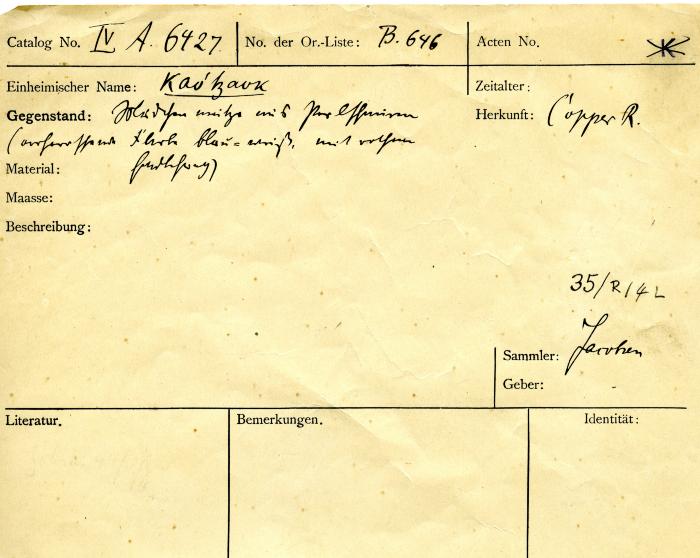 Catalog No. IV A. 6427 No. der Or.-Liste: B. 646 Acten No.
Einheimischer Name: Zeitalter:
Gegenstand: Mädchenmütze aus Perlschnüren Herkunft: Copper R.
Farbe blau-weiß, mit rothem
Material:
Maasse:
Beschreibung:
35/R/4L
Sammler: Jacobsen
Geber:
Literatur. Bemerkungen. Identität: